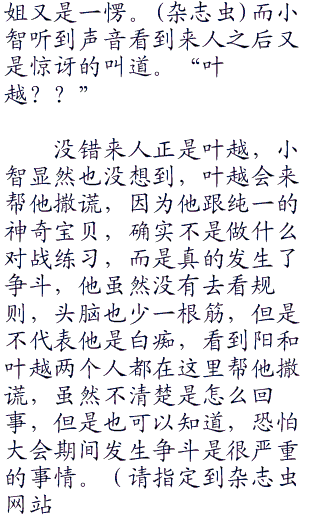 姐又是一愣。(杂志虫)而小
智听到声音看到来人之后又
是惊讶的叫道。“叶
越？？”
没错来人正是叶越，小
智显然也没想到，叶越会来
帮他撒谎，因为他跟纯一的
神奇宝贝，确实不是做什么
对战练习，而是真的发生了
争斗，他虽然没有去看规
则，头脑也少一根筋，但是
不代表他是白痴，看到阳和
叶越两个人都在这里帮他撒
谎，虽然不清楚是怎么回
事，但是也可以知道，恐怕
大会期间发生争斗是很严重
的事情。（请指定到杂志虫
网站